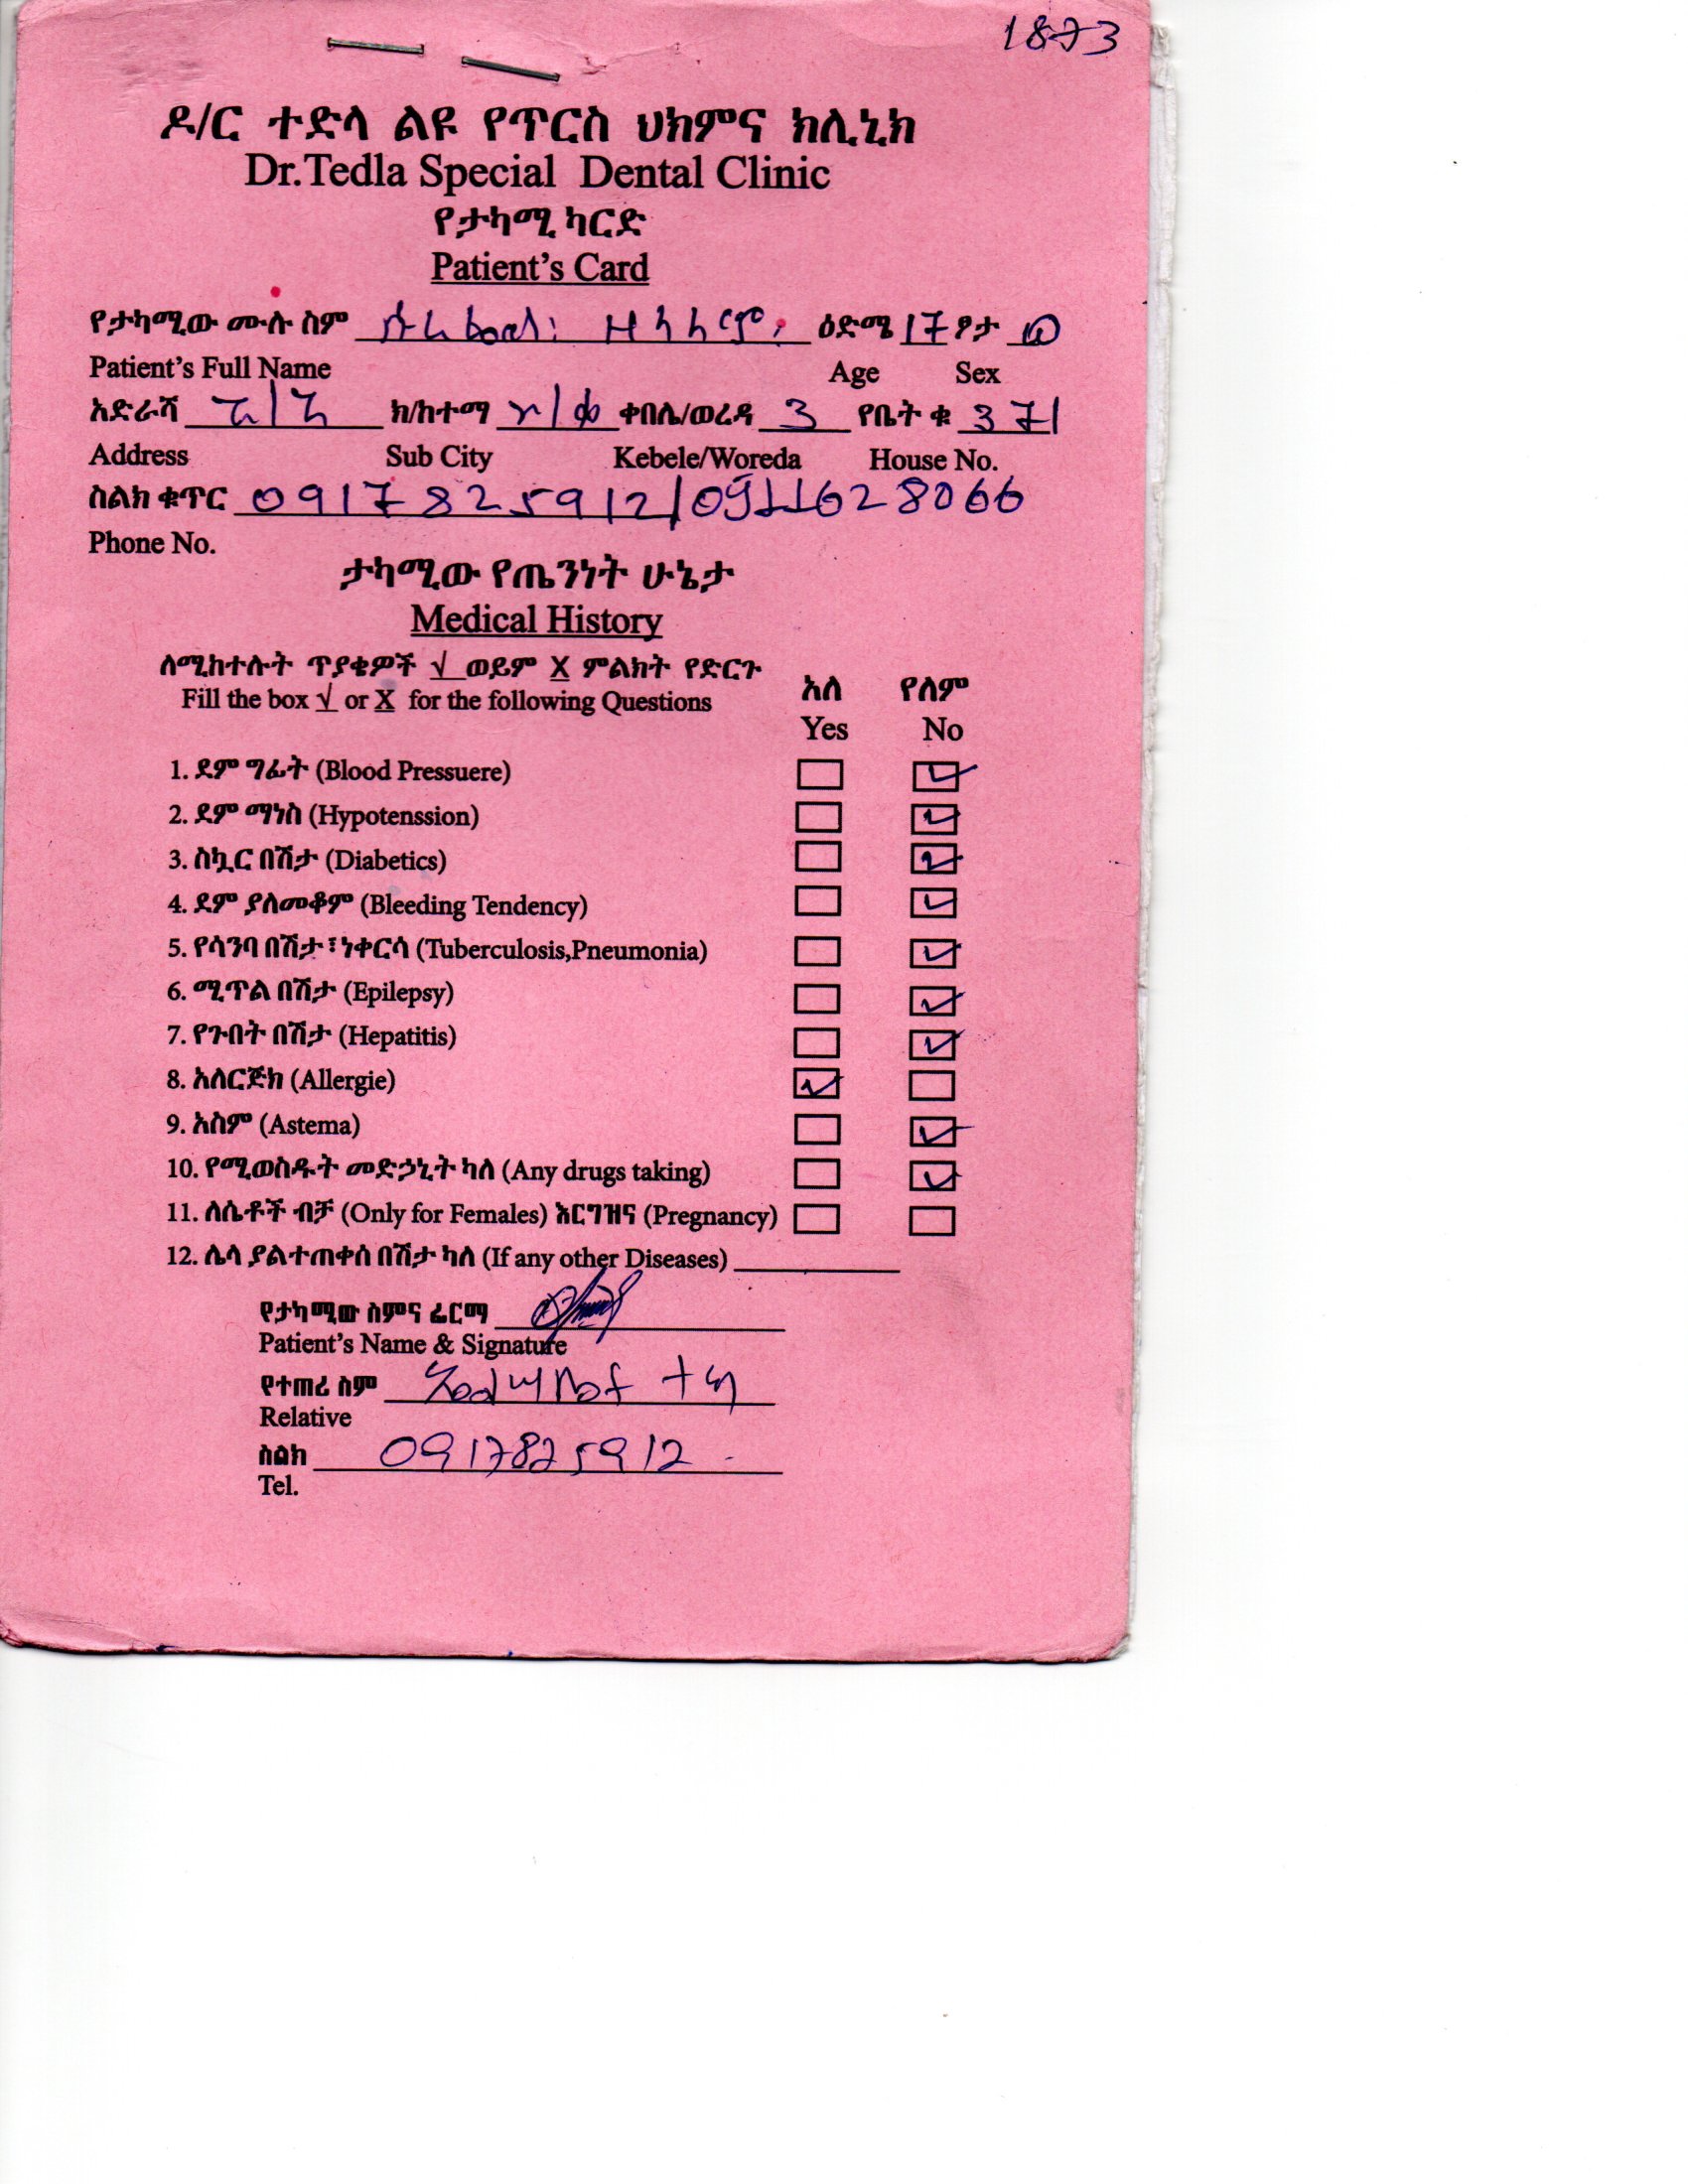 1873
ዶ/ር ተድላ ልዩ የጥርስ ህክምና ክሊኒክ
Dr.Tedla Special Dental Clinic
የታካሚ ካርድ
Patient's Card
የታካሚው ሙሉ ስም ዕድሜ 17 ፆታ ወ
Patient's Full Name Age Sex
አድራሻ ክ/ከተማ ቀበሌ/ወረዳ 3 የቤት ቁ 371
Address Sub City Kebele/Woreda House No.
ስልክ ቁጥር 0917825912/0911628066
Phone No.
ታካሚው የጤንነት ሁኔታ
Medical History
ለሚከተሉት ጥያቄዎች √ ወይም X ምልክት የድርጉ
Fill the box √ or X for the following Questions
አለ የለም
Yes No
1. ደም ግፊት (Blood Pressuere)
2. ደም ማነስ (Hypotenssion)
3. ስኳር በሽታ (Diabetics)
4. ደም ያለመቆም (Bleeding Tendency)
5. የሳንባ በሽታ፣ነቀርሳ (Tuberculosis,Pneumonia)
6. ሚጥል በሽታ (Epilepsy)
7. የጉበት በሽታ (Hepatitis)
8. አለርጅክ (Allergie)
9. አስም (Astema)
10. የሚወስዱት መድኃኒት ካለ (Any drugs taking)
11. ለሴቶች ብቻ (Only for Females) እርግዝና (Pregnancy)
12. ሌላ ያልተጠቀሰ በሽታ ካለ (If any other Diseases)
የታካሚው ስምና ፊርማ
Patient's Name & Signature
የተጠሪ ስም
Relative
ስልክ 0917825912
Tel.